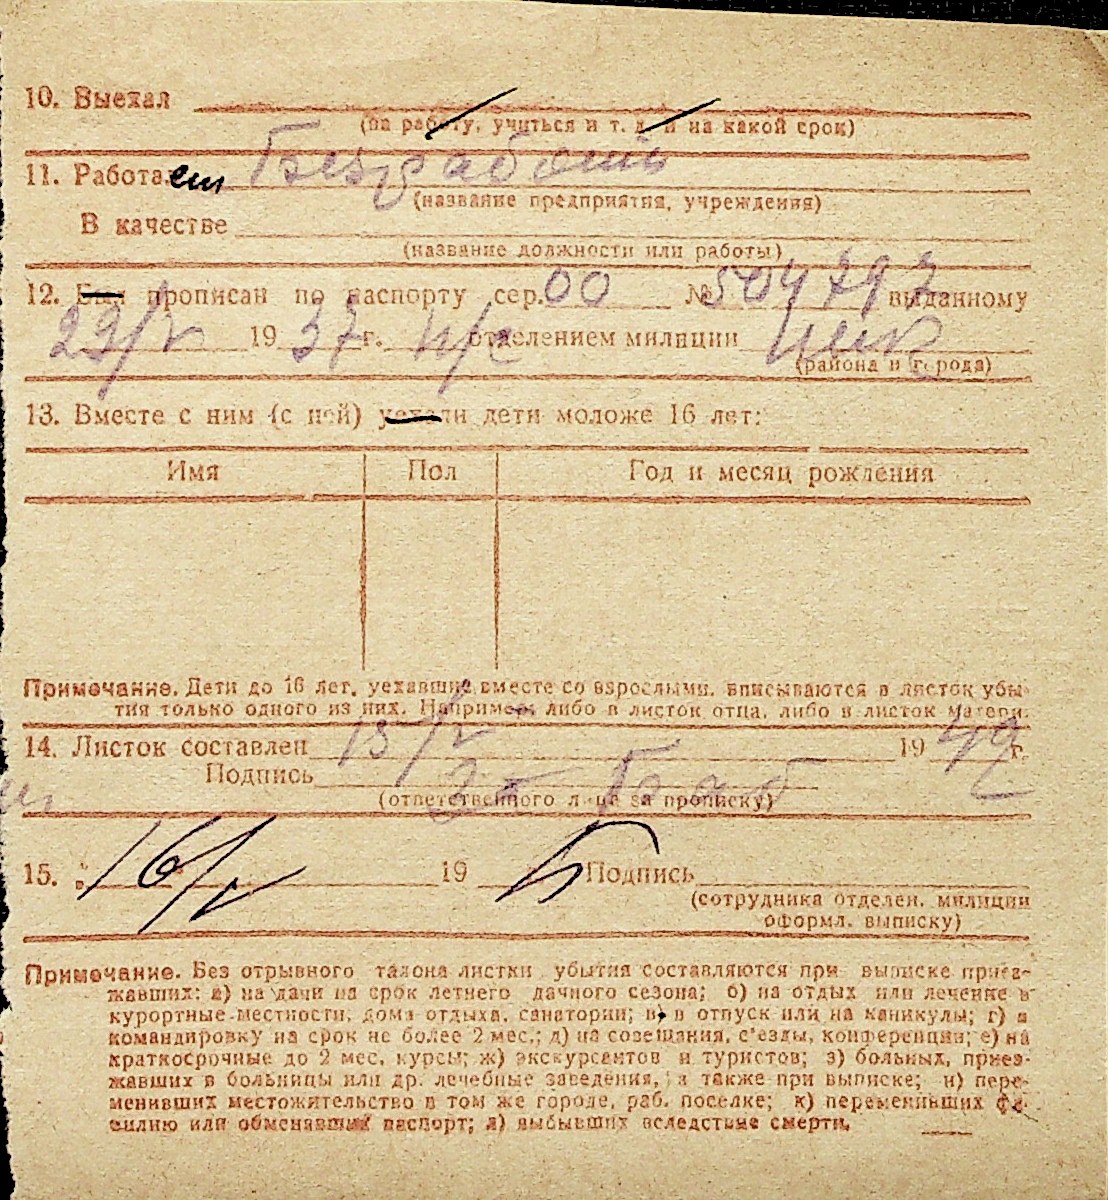 10. Выехал
(на работу, учиться и т. д. и на какой срок)
11. Работает Безработн
(название предприятия, учреждения)
В качестве
(название должности или работы)
12. Был прописан по паспорту сер. 00 № 504797 выданному
23/V 1937 г. отделением милиции
(района и города)
13. Вместе с ним (с ней) уехали дети моложе 16 лет:
Имя Пол Год и месяц рождения
Примечание. Дети до 16 лет, уехавшие вместе со взрослыми, вписываются в листок убы-
тия только одного из них. Например: либо в листок отца, либо в листок матери.
14. Листок составлен 15/V 1940 г.
Подпись
(ответственного лица за прописку)
15. 16/V 19 Подпись
(сотрудника отделен. милиции
оформл. выписку)
Примечание. Без отрывного талона листки убытия составляются при выписке приез-
жавших: а) на дачи на срок летнего дачного сезона; б) на отдых или лечение в
курортные местности, дома отдыха, санатории; в) в отпуск или на каникулы; г) в
командировку на срок не более 2 мес.; д) на совещания, с'езды, конференции; е) на
краткосрочные до 2 мес. курсы; ж) экскурсантов и туристов; з) больных, приез-
жавших в больницы или др. лечебные заведения, а также при выписке; и) пере-
менивших местожительство в том же городе, раб. поселке; к) переменивших фа-
милию или обменявших паспорт; л) выбывших вследствие смерти.